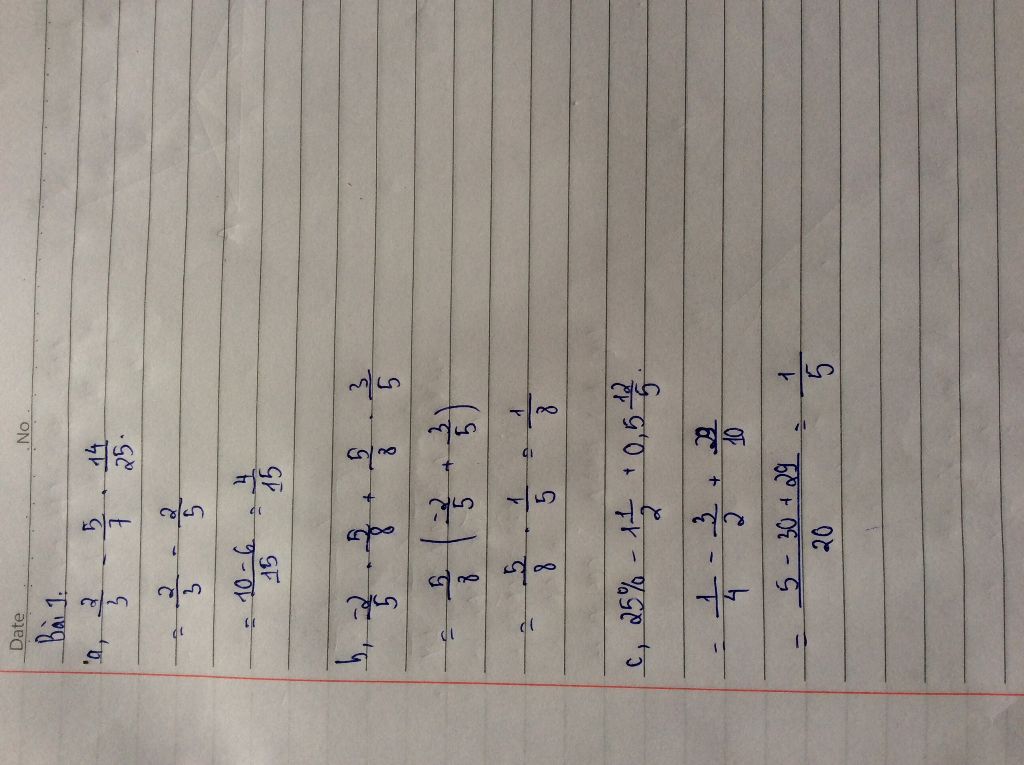 Date No
Bài 1.
a, 2/3 - 5/7 . 14/25.
= 2/3 - 2/5
= 10-6/15 = 4/15
b, -2/5 . 5/8 + 5/8 . 3/5
= 5/8 (-2/5 + 3/5)
= 5/8 . 1/5 = 1/8
c, 25% - 1 1/2 + 0,5 12/5.
= 1/4 - 3/2 + 29/10
= 5 - 30 + 29/20 = 1/5